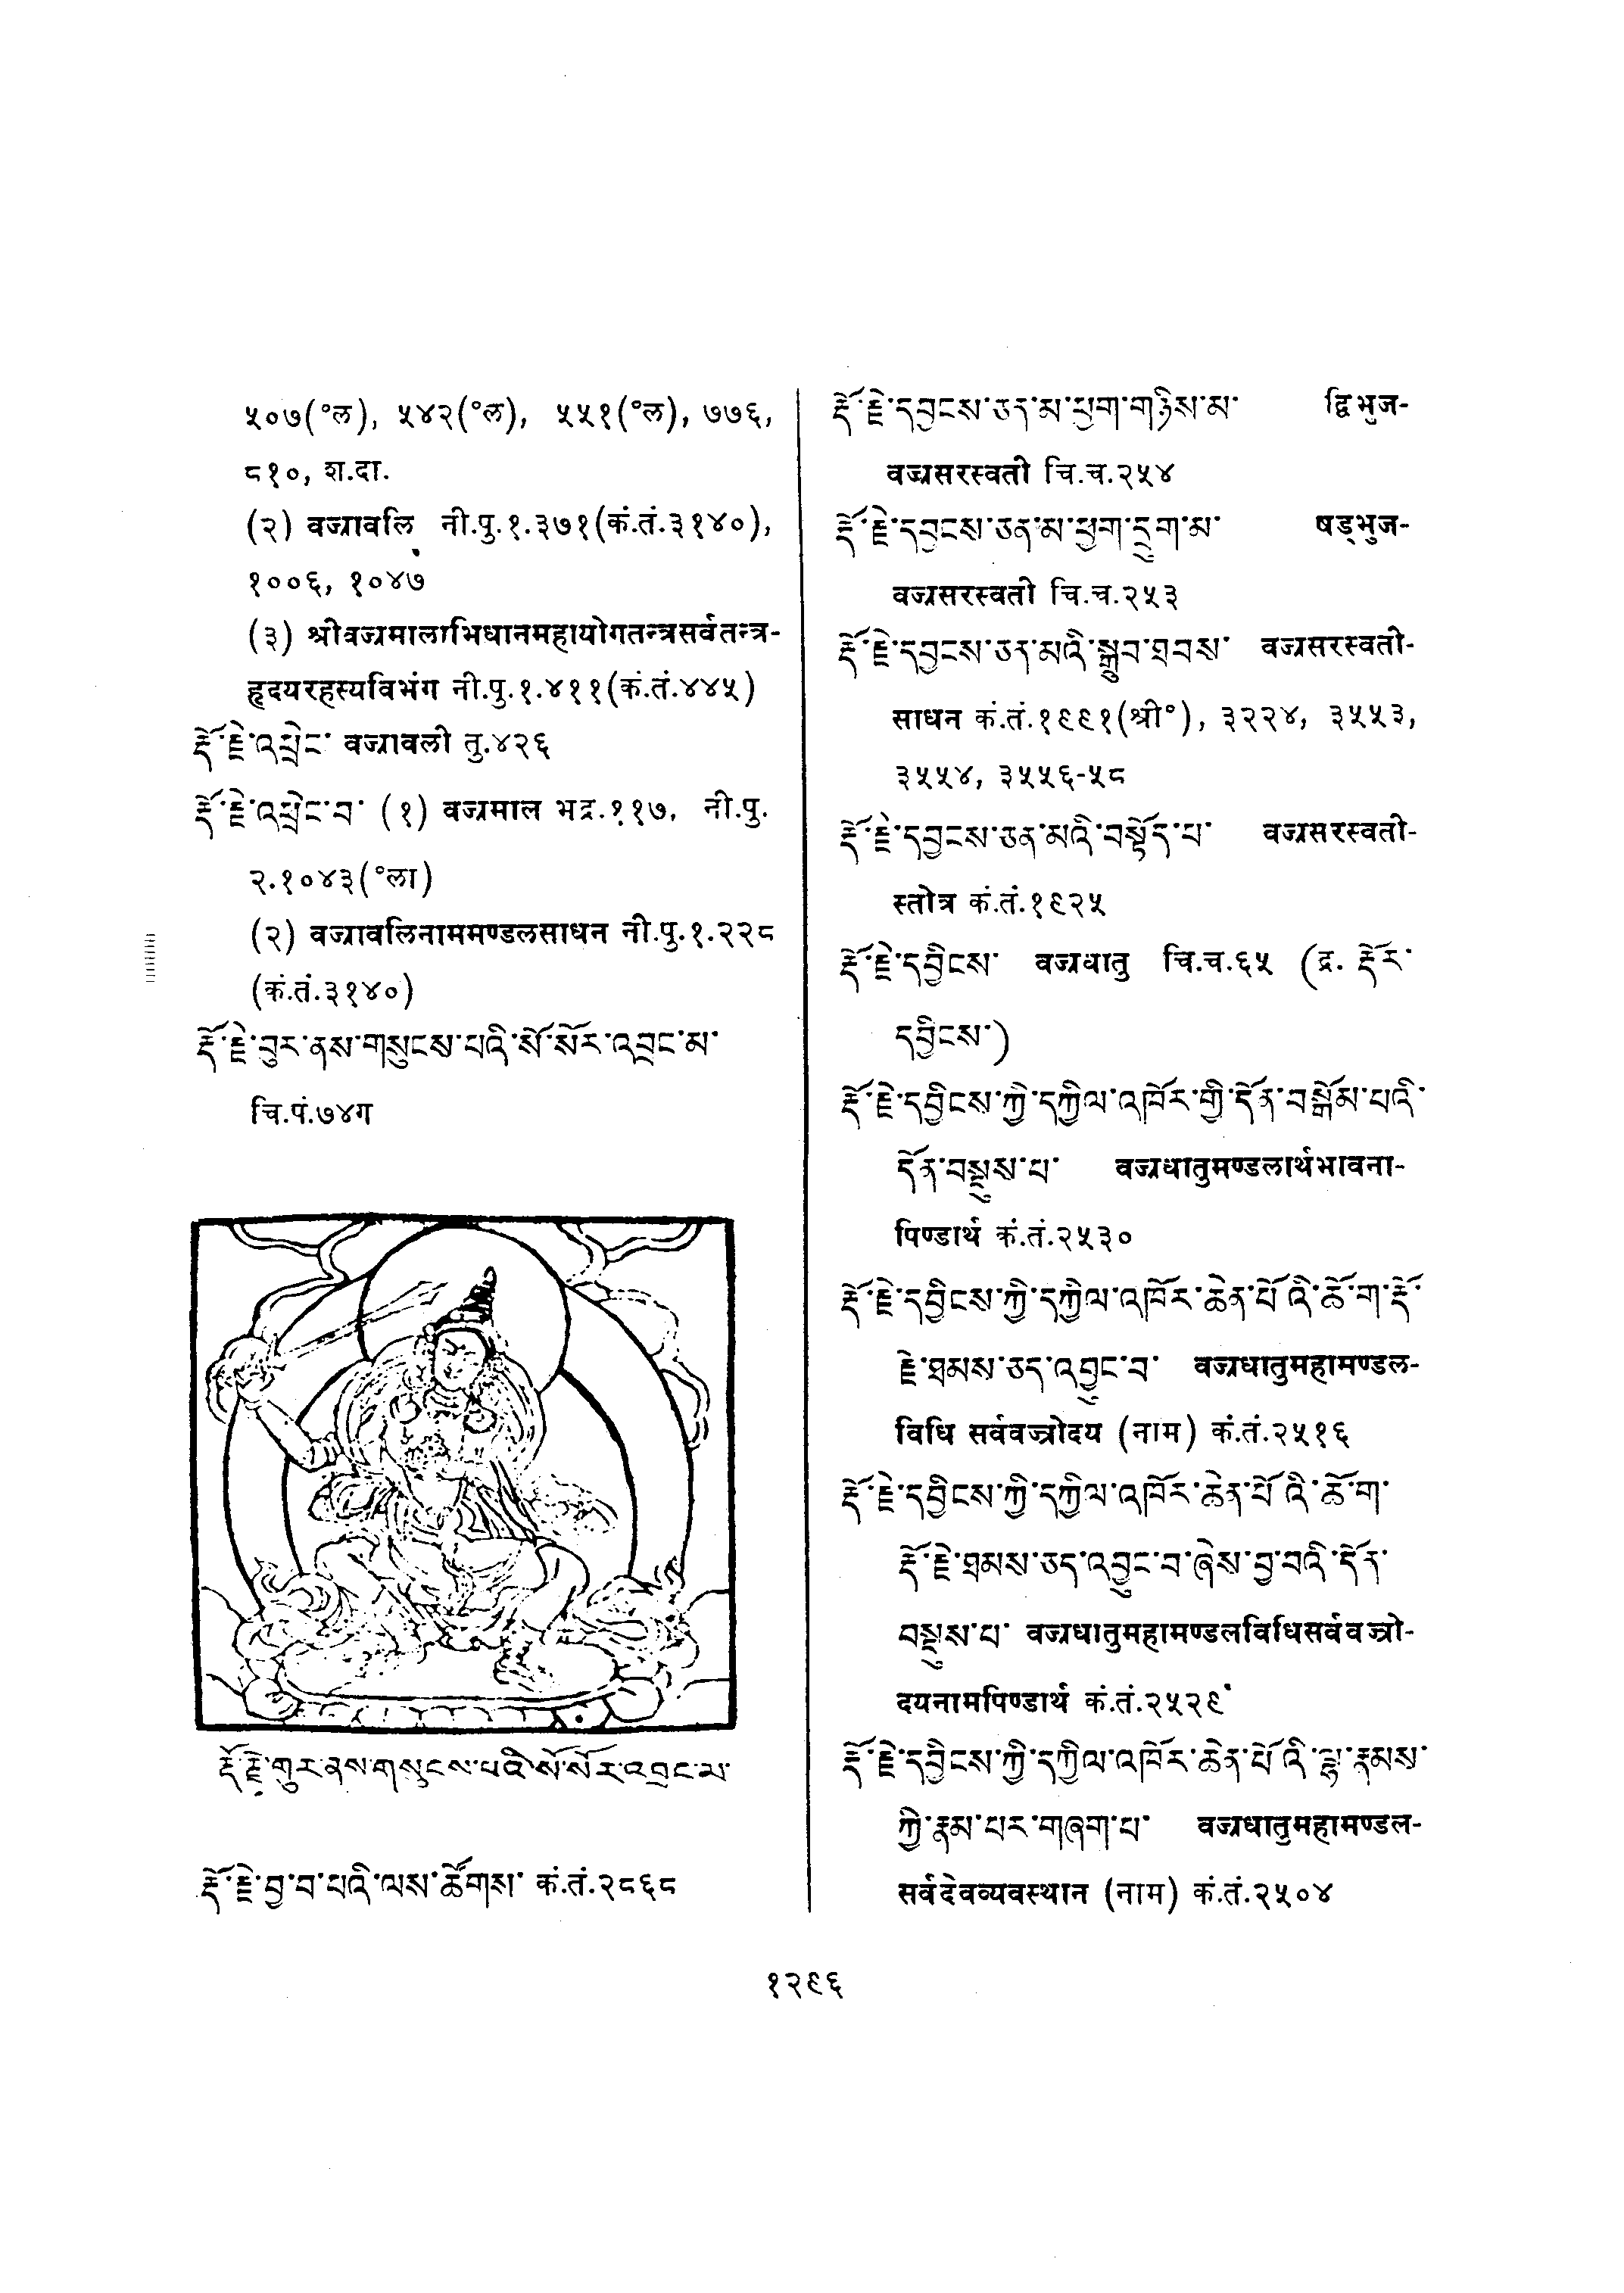 ५०७(°ल), ५४२(°ल), ५५१(°ल), ७७६,
८१०, श.दा.
(२) वज्रावलि नी.पु.१.३७१(कं.तं.३१४०),
१००६, १०४७
(३) श्रीवज्रमालाभिधानमहायोगतन्त्रसर्वतन्त्र-
हृदयरहस्यविभंग नी.पु.१.४११(कं.तं.४४५)
རྡོ་རྗེ་འཕྲེང་ वज्रावली तु.४२६
རྡོ་རྗེ་འཕྲེང་བ་ (१) वज्रमाल भद्र.११७, नी.पु.
२.१०४३(°ला)
(२) वज्रावलिनाममण्डलसाधन नी.पु.१.२२८
(कं.तं.३१४०)
རྡོ་རྗེ་བུར་ནས་གསུངས་པའི་སོ་སོར་འབྲང་མ་
चि.पं.७४ग
རྡོ་རྗེ་གུར་ནས་གསུངས་པའི་སོ་སོར་འབྲང་མ་
རྡོ་རྗེ་བྱ་བ་པའི་ལས་ཚོགས་ कं.तं.२८६८
རྡོ་རྗེ་དབྱངས་ཅན་མ་ཕྱག་གཉིས་མ་ द्विभुज-
वज्रसरस्वती चि.च.२५४
རྡོ་རྗེ་དབྱངས་ཅན་མ་ཕྱག་དྲུག་མ་ षड्भुज-
वज्रसरस्वती चि.च.२५३
རྡོ་རྗེ་དབྱངས་ཅན་མའི་སྒྲུབ་ཐབས་ वज्रसरस्वती-
साधन कं.तं.१९९१(श्री°), ३२२४, ३५५३,
३५५४, ३५५६-५८
རྡོ་རྗེ་དབྱངས་ཅན་མའི་བསྟོད་པ་ वज्रसरस्वती-
स्तोत्र कं.तं.१९२५
རྡོ་རྗེ་དབྱིངས་ वज्रधातु चि.च.६५ (द्र. རྡོར་
དབྱིངས་)
རྡོ་རྗེ་དབྱིངས་ཀྱི་དཀྱིལ་འཁོར་གྱི་དོན་བསྒོམ་པའི་
དོན་བསྡུས་པ་ वज्रधातुमण्डलार्थभावना-
पिण्डार्थ कं.तं.२५३०
རྡོ་རྗེ་དབྱིངས་ཀྱི་དཀྱིལ་འཁོར་ཆེན་པོའི་ཆོ་ག་རྡོ་
རྗེ་ཐམས་ཅད་འབྱུང་བ་ वज्रधातुमहामण्डल-
विधि सर्ववज्रोदय (नाम) कं.तं.२५१६
རྡོ་རྗེ་དབྱིངས་ཀྱི་དཀྱིལ་འཁོར་ཆེན་པོའི་ཆོ་ག་
རྡོ་རྗེ་ཐམས་ཅད་འབྱུང་བ་ཞེས་བྱ་བའི་དོན་
བསྡུས་པ་ वज्रधातुमहामण्डलविधिसर्ववज्रो-
दयनामपिण्डार्थ कं.तं.२५२९
རྡོ་རྗེ་དབྱིངས་ཀྱི་དཀྱིལ་འཁོར་ཆེན་པོའི་ལྷ་རྣམས་
ཀྱི་རྣམ་པར་གཞག་པ་ वज्रधातुमहामण्डल-
सर्वदेवव्यवस्थान (नाम) कं.तं.२५०४
१२९६